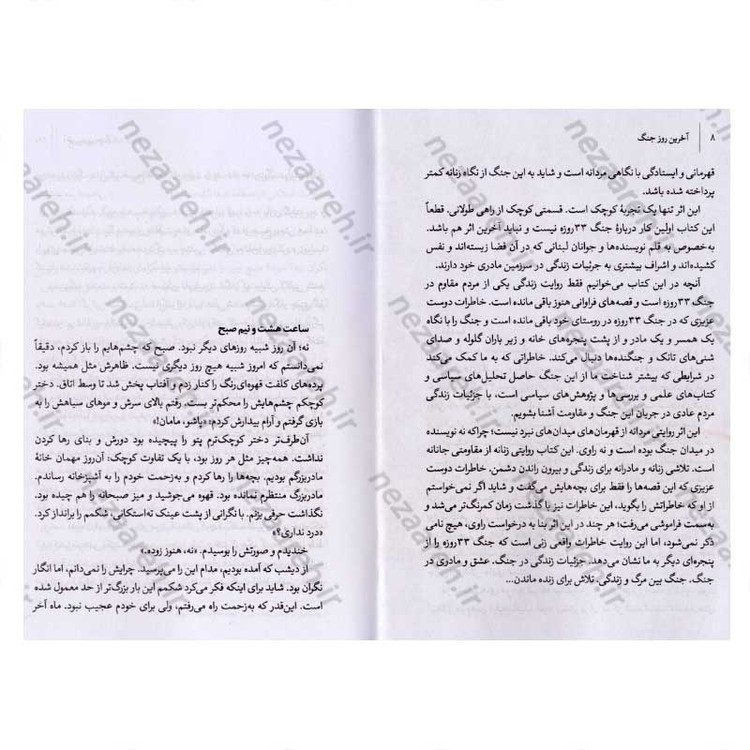 ۸ آخرین روز جنگ
قهرمانی و ایستادگی با نگاهی مردانه است و شاید به این جنگ از نگاه زنانه کمتر
پرداخته شده باشد.
این اثر تنها یک تجربهٔ کوچک است. قسمتی کوچک از راهی طولانی. قطعاً
این کتاب اولین کار دربارهٔ جنگ ۳۳روزه نیست و نباید آخرین اثر هم باشد.
به‌خصوص به قلم نویسنده‌ها و جوانان لبنانی که در آن فضا زیسته‌اند و نفس
کشیده‌اند و اشراف بیشتری به جزئیات زندگی در سرزمین مادری خود دارند.
آنچه در این کتاب می‌خوانیم فقط روایت زندگی یکی از مردم مقاوم در
جنگ ۳۳روزه است و قصه‌های فراوانی هنوز باقی مانده است. خاطرات دوست
عزیزی که در جنگ ۳۳روزه در روستای خود باقی مانده است و جنگ را با نگاه
یک همسر و یک مادر و از پشت پنجره‌های خانه و زیر باران گلوله و صدای
شنی‌های تانک و جنگنده‌ها دنبال می‌کند. خاطراتی که به ما کمک می‌کند
در شرایطی که بیشتر شناخت ما از این جنگ حاصل تحلیل‌های سیاسی و
کتاب‌های علمی و بررسی‌ها و پژوهش‌های سیاسی است، با جزئیات زندگی
مردم عادی در جریان این جنگ و مقاومت آشنا بشویم.
این اثر روایتی مردانه از قهرمان‌های میدان‌های نبرد نیست؛ چراکه نه نویسنده
در میدان جنگ بوده است و نه راوی. این کتاب روایتی زنانه از مقاومتی جانانه
است. تلاشی زنانه و مادرانه برای زندگی و بیرون راندن دشمن. خاطرات دوست
عزیزی که این قصه‌ها را فقط برای بچه‌هایش می‌گفت و شاید اگر نمی‌خواستم
از او که خاطراتش را بگوید، این خاطرات نیز با گذشت زمان کمرنگ‌تر می‌شد و
به‌سمت فراموشی می‌رفت؛ هر چند در این اثر بنا به درخواست راوی، هیچ نامی
ذکر نمی‌شود، اما این روایت خاطرات واقعی زنی است که جنگ ۳۳روزه را از
پنجره‌ای دیگر به ما نشان می‌دهد. جزئیات زندگی در جنگ. عشق و مادری در
جنگ. جنگ بین مرگ و زندگی. تلاش برای زنده ماندن...
ساعت هشت و نیم صبح
نه؛ آن روز شبیه روزهای دیگر نبود. صبح که چشم‌هایم را باز کردم، دقیقاً
نمی‌دانستم که امروز شبیه هیچ روز دیگری نیست. ظاهرش مثل همیشه بود.
پرده‌های کلفت قهوه‌ای‌رنگ را کنار زدم و آفتاب پخش شد تا وسط اتاق. دختر
کوچکم چشم‌هایش را محکم‌تر بست. رفتم بالای سرش و موهای سیاهش را به
بازی گرفتم و آرام بیدارش کردم: «پاشو، مامان!»
آن‌طرف‌تر دختر کوچک‌ترم پتو را پیچیده بود دورش و بنای رها کردن
نداشت. همه‌چیز مثل هر روز بود، با یک تفاوت کوچک: آن‌روز مهمان خانهٔ
مادربزرگم بودیم. بچه‌ها را رها کردم و به‌زحمت خودم را به آشپزخانه رساندم.
مادربزرگ منتظرم نمانده بود. قهوه می‌جوشید و میز صبحانه را هم چیده بود.
نگذاشت حرفی بزنم. با نگرانی از پشت عینک ته‌استکانی، شکمم را برانداز کرد.
«درد نداری؟»
خندیدم و صورتش را بوسیدم. «نه، هنوز زوده.»
از دیشب که آمده بودیم، مدام این را می‌پرسید. چرایش را نمی‌دانم، اما انگار
نگران بود. شاید برای اینکه فکر می‌کرد شکمم این بار بزرگ‌تر از حد معمول شده
است. این‌قدر که به‌زحمت راه می‌رفتم، ولی برای خودم عجیب نبود. ماه آخر
nezaareh.ir